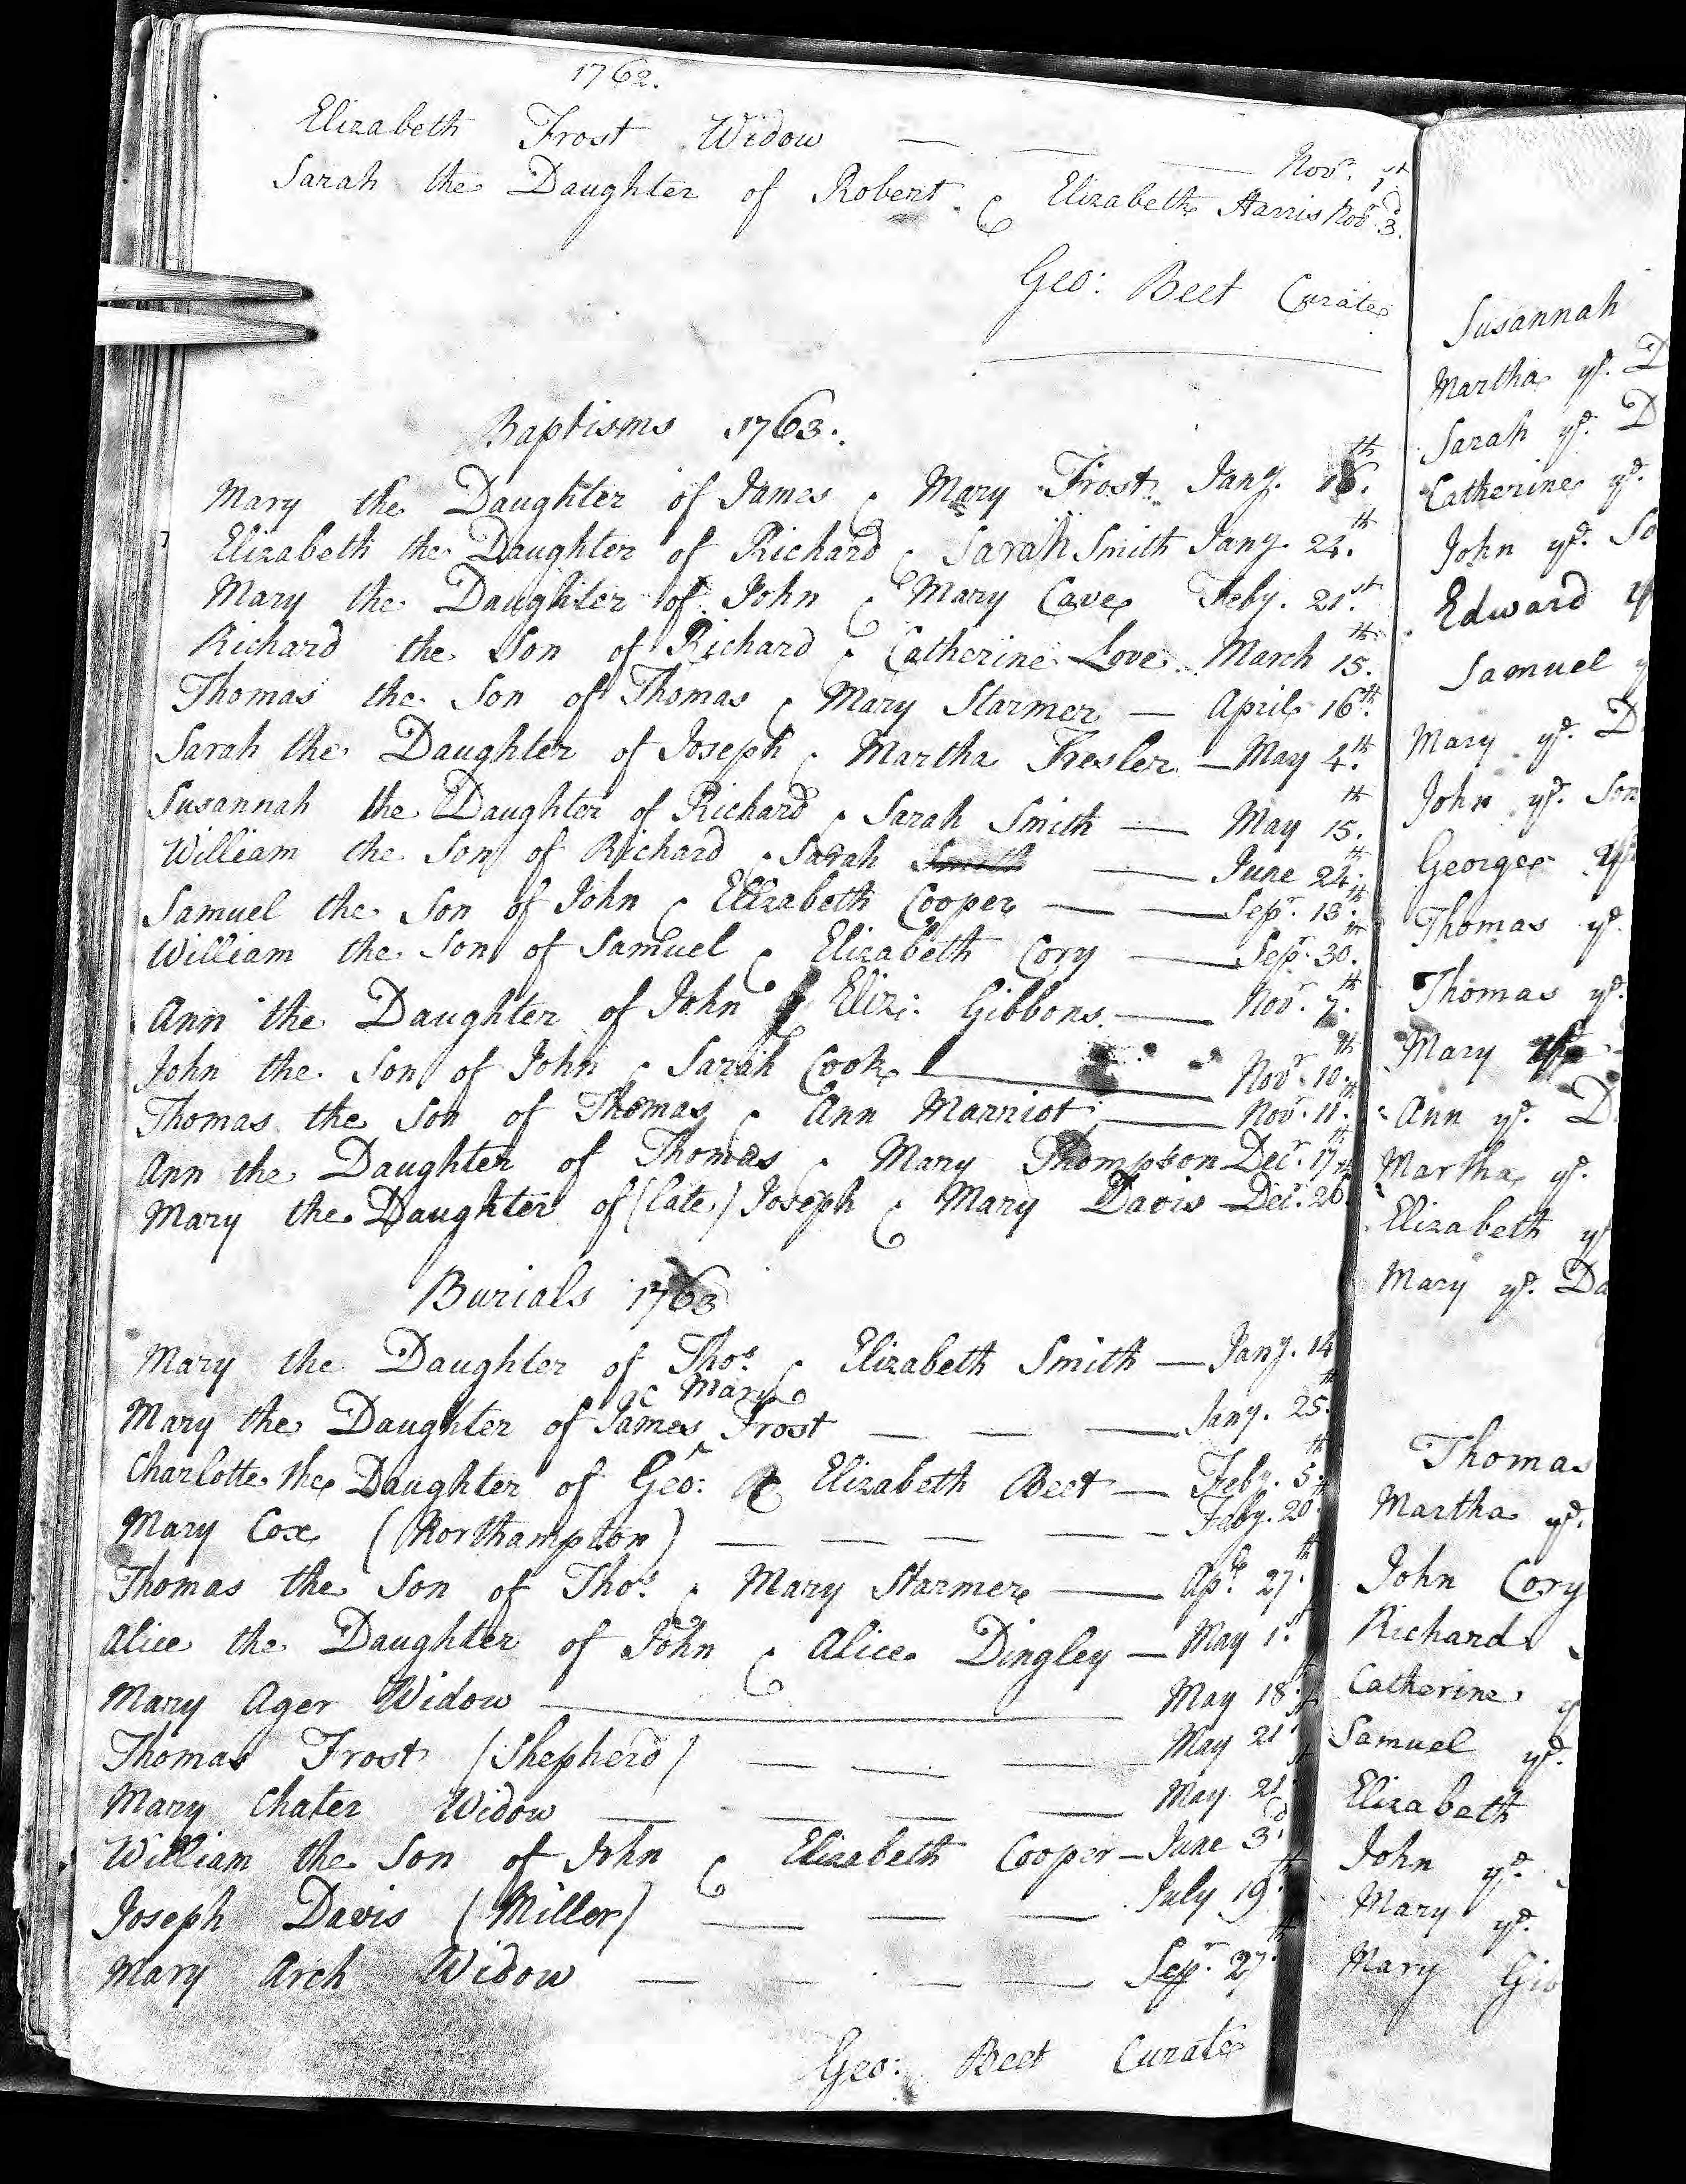 1762.
Elizabeth Frost Widow — — — Novr. 1st
Sarah the Daughter of Robert & Elizabeth Harris Novr. 3d.
Geo: Beet Curate
Baptisms 1763.
Mary the Daughter of James & Mary Frost Jany. 16th.
Elizabeth the Daughter of Richard & Sarah Smith Jany. 24th.
Mary the Daughter of John & Mary Cave Feby. 21st.
Richard the Son of Richard & Catherine Love March 15th.
Thomas the Son of Thomas & Mary Starmer — April 16th.
Sarah the Daughter of Joseph & Martha — May 4th.
Susannah the Daughter of Richard & Sarah Smith — May 15th.
William the Son of Richard & Sarah Smith — June 24th.
Samuel the Son of John & Elizabeth Cooper — — Sepr. 13th.
William the Son of Samuel & Elizabeth Cory — Sepr. 30th.
Ann the Daughter of John & Eliz: Gibbons — Novr. 7th.
John the Son of John & Sarah Cook — Novr. 10th.
Thomas the Son of Thomas & Ann Marriot — Novr. 11th.
Ann the Daughter of Thomas & Mary Thompson Decr. 17th
Mary the Daughter of (late) Joseph & Mary Davis Decr. 26th
Burials 1763
Mary the Daughter of Thos. & Elizabeth Smith — Jany. 14
& Mary
Mary the Daughter of James ^ Frost — — — Jany. 25th.
Charlotte the Daughter of Geo: & Elizabeth Beet — Feby. 5th
Mary Cox (Northampton) — — — — Feby. 20th.
Thomas the Son of Thos. & Mary Starmer — Apl. 27th.
Alice the Daughter of John & Alice Dingley — May 1st.
Mary Ager Widow — May 18th.
Thomas Frost (Shepherd) — — — May 21st
Mary Chater Widow — — — — May 21st.
William the Son of John & Elizabeth Cooper — June 3d.
Joseph Davis (Miller) — — — July 19th.
Mary Arch Widow — — — — Sepr. 27th.
Geo: Beet Curate
Susannah
Martha ye. D
Sarah ye. D
Catherine ye.
John ye. So
Edward y
Samuel y
Mary ye. D
John ye. Son
George ye
Thomas ye.
Thomas ye.
Mary ye
Ann ye. D
Martha ye.
Elizabeth y
Mary ye. Da
Thomas
Martha ye.
John Cory
Richard
Catherine y
Samuel ye.
Elizabeth
John ye.
Mary ye.
Mary Gib